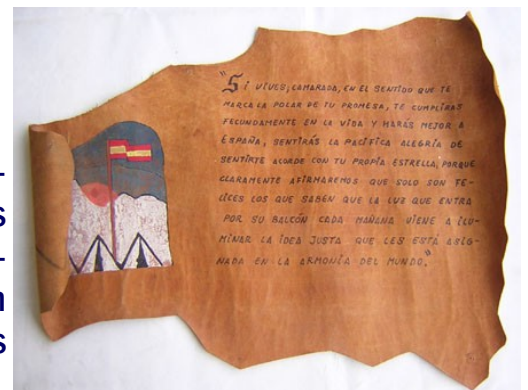 "Si VIVES; CAMARADA, EN EL SENTIDO QUE TE
MARCA LA POLAR DE TU PROMESA, TE CUMPLIRÁS
FECUNDAMENTE EN LA VIDA Y HARÁS MEJOR A
ESPAÑA, SENTIRÁS LA PACÍFICA ALEGRÍA DE
SENTIRTE ACORDE CON TU PROPIA ESTRELLA, PORQUE
CLARAMENTE AFIRMAREMOS QUE SOLO SON FE-
LICES LOS QUE SABEN QUE LA LUZ QUE ENTRA
POR SU BALCÓN CADA MAÑANA VIENE A ILU-
MINAR LA IDEA JUSTA QUE LES ESTÁ ASIG-
NADA EN LA ARMONÍA DEL MUNDO."